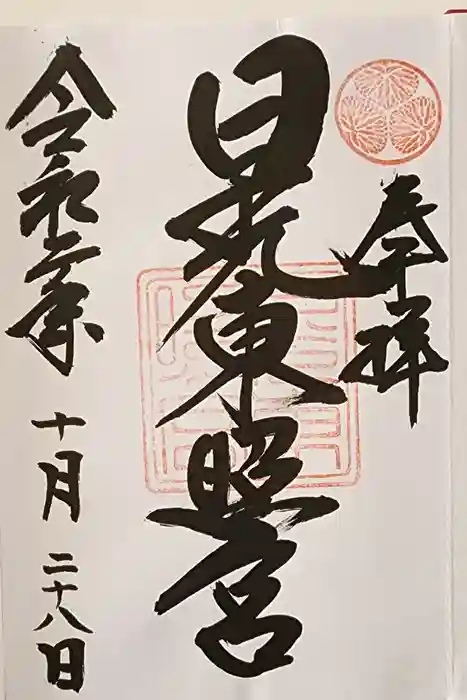 奉拝
日光東照宮
令和二年十月二十八日